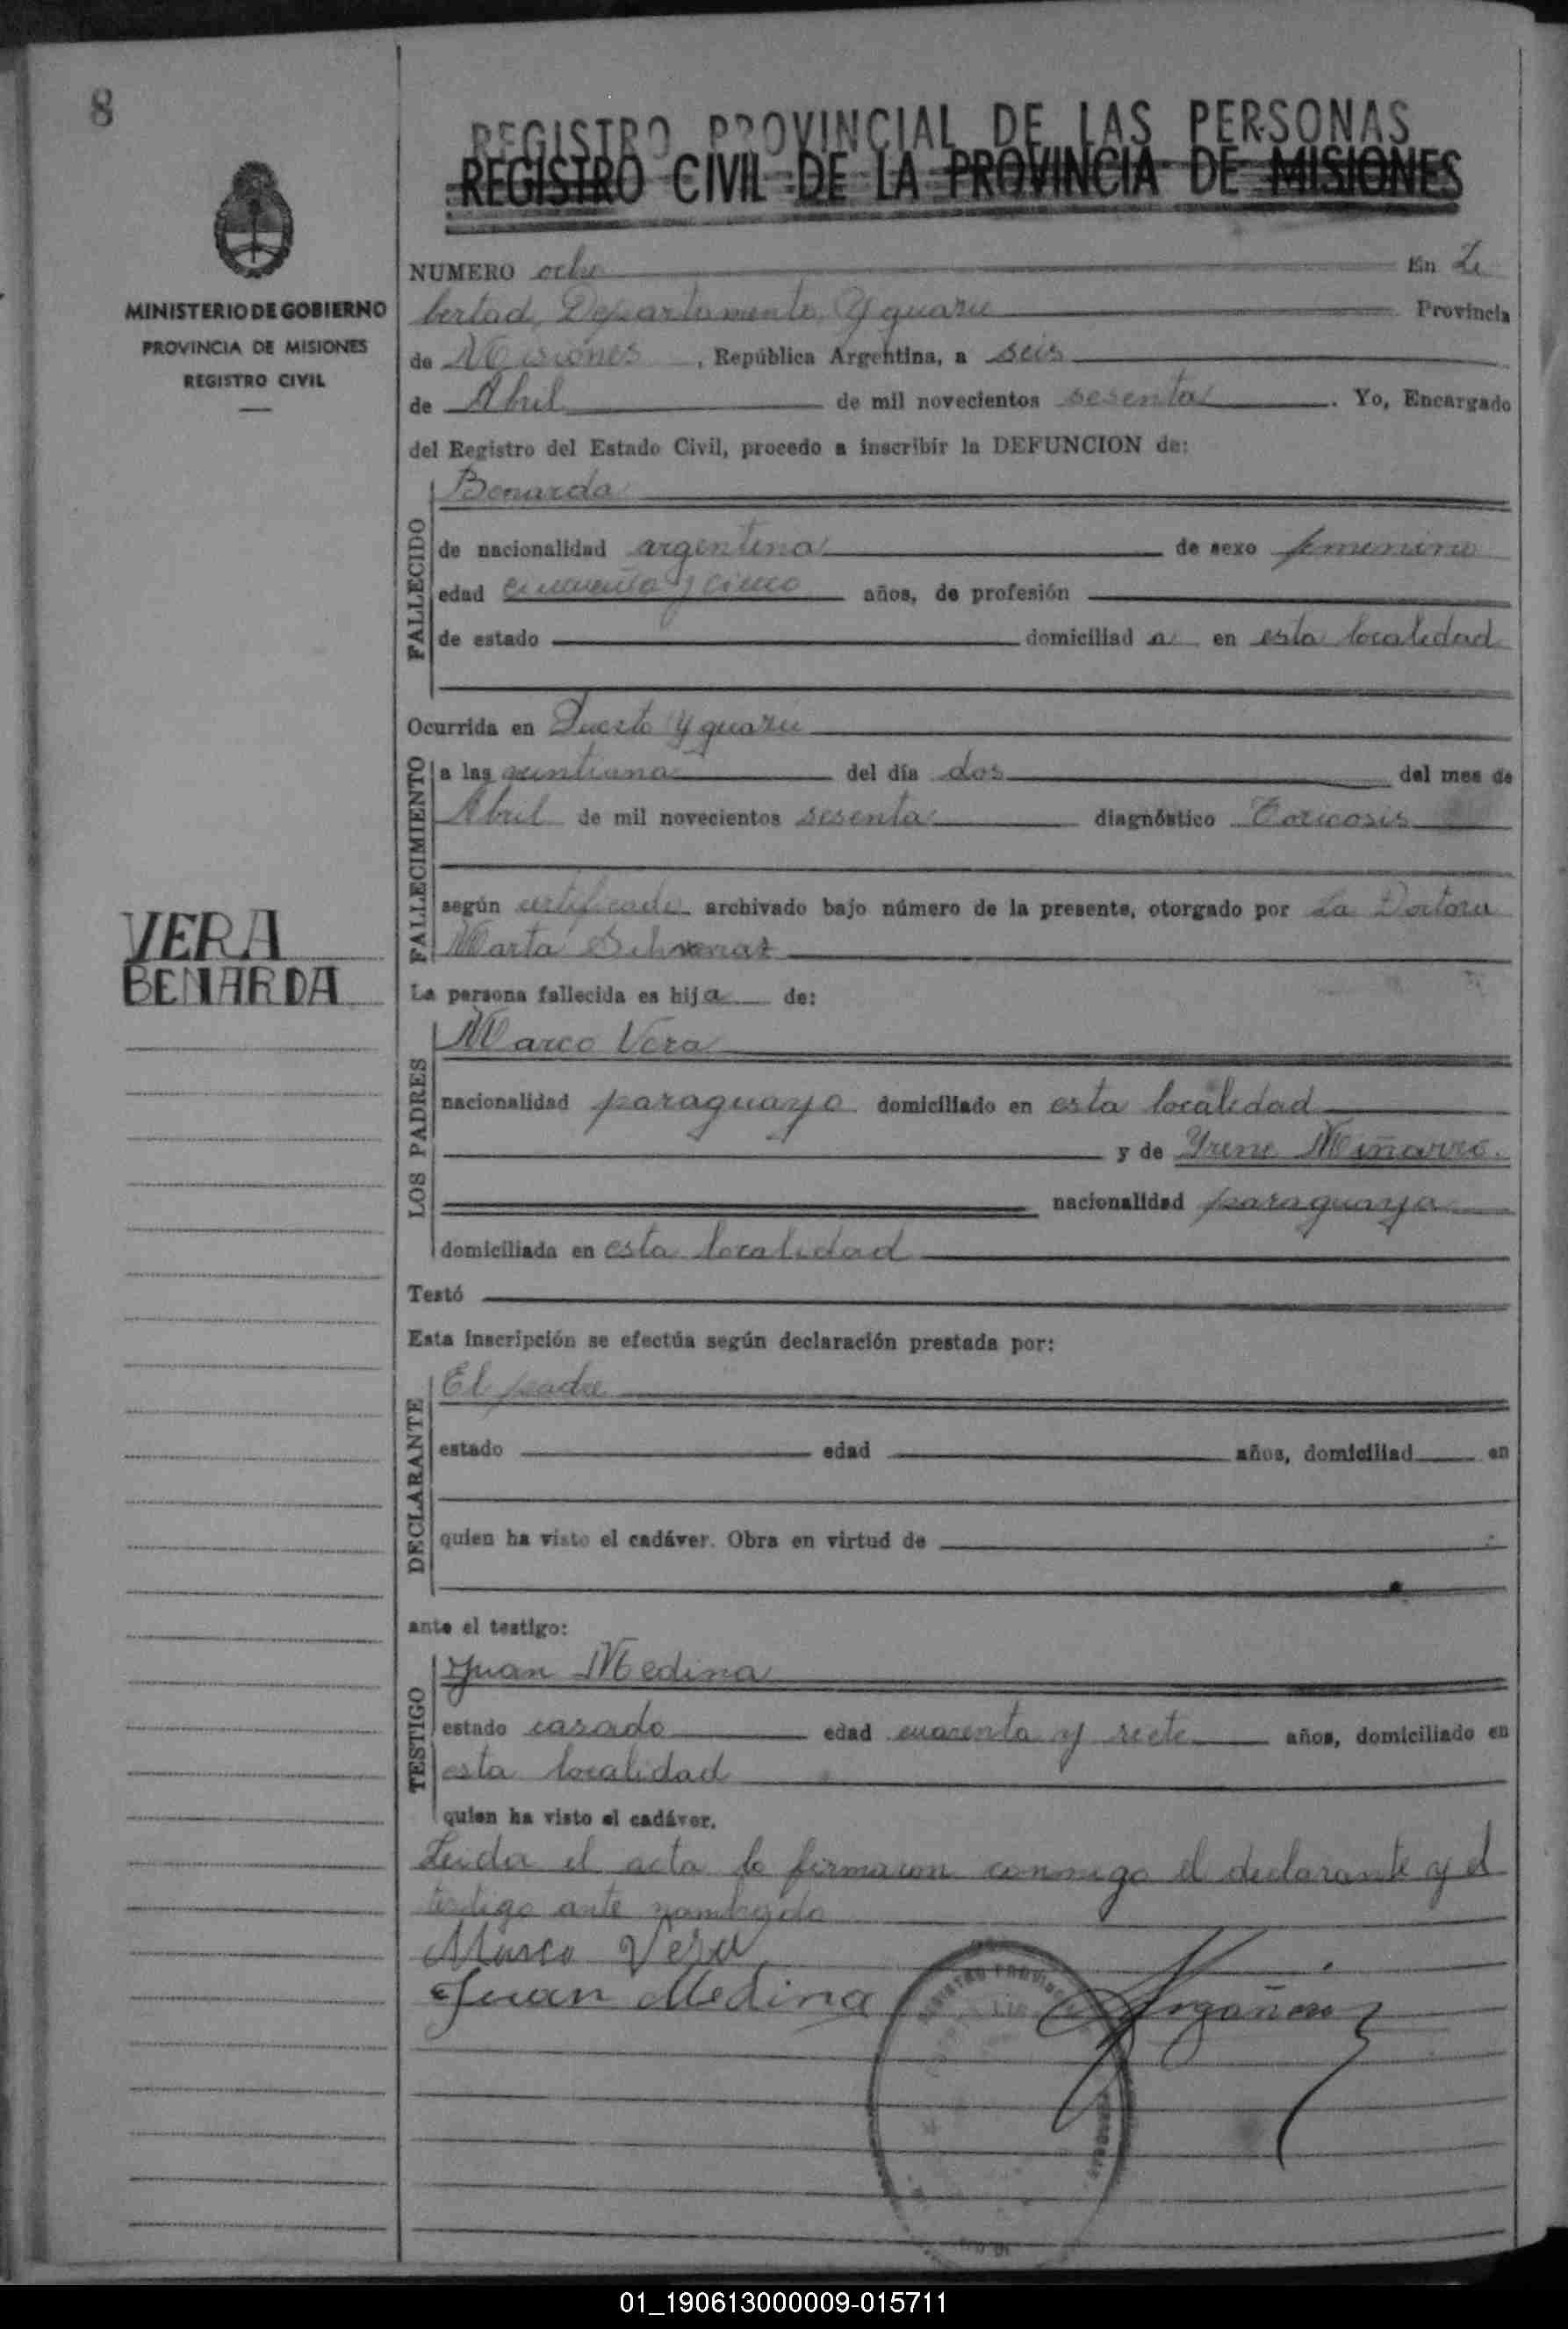 8
REGISTRO PROVINCIAL DE LAS PERSONAS
REGISTRO CIVIL DE LA PROVINCIA DE MISIONES
MINISTERIO DE GOBIERNO
PROVINCIA DE MISIONES
REGISTRO CIVIL
VERA
BENARDA
NUMERO ocho En Li
bertad, Departamento, Yguazu Provincia
de Misiones, República Argentina, a seis
de Abril de mil novecientos sesenta. Yo, Encargado
del Registro del Estado Civil, procedo a inscribir la DEFUNCION de:
FALLECIDO
Benarda
de nacionalidad argentina de sexo femenino
edad cincuenta y cinco años, de profesión
de estado domiciliad a en esta localidad
Ocurrida en Puerto Yguazu
FALLECIMIENTO
a las veintiuna del día dos del mes de
Abril de mil novecientos sesenta diagnóstico
según certificado archivado bajo número de la presente, otorgado por La Doctora
Marta
La persona fallecida es hija de:
LOS PADRES
Marco Vera
nacionalidad paraguayo domiciliado en esta localidad
y de Yrene Miñarro.
nacionalidad paraguaya
domiciliada en esta localidad
Testó
Esta inscripción se efectúa según declaración prestada por:
DECLARANTE
El padre
estado edad años, domiciliad en
quien ha visto el cadáver. Obra en virtud de
ante el testigo:
TESTIGO
Juan Medina
estado casado edad cuarenta y siete años, domiciliado en
esta localidad
quien ha visto el cadáver.
Leida el acta lo firmaron conmigo el declarante y el
testigo ante nombrado
Marco Vera
Juan Medina
01_190613000009-015711